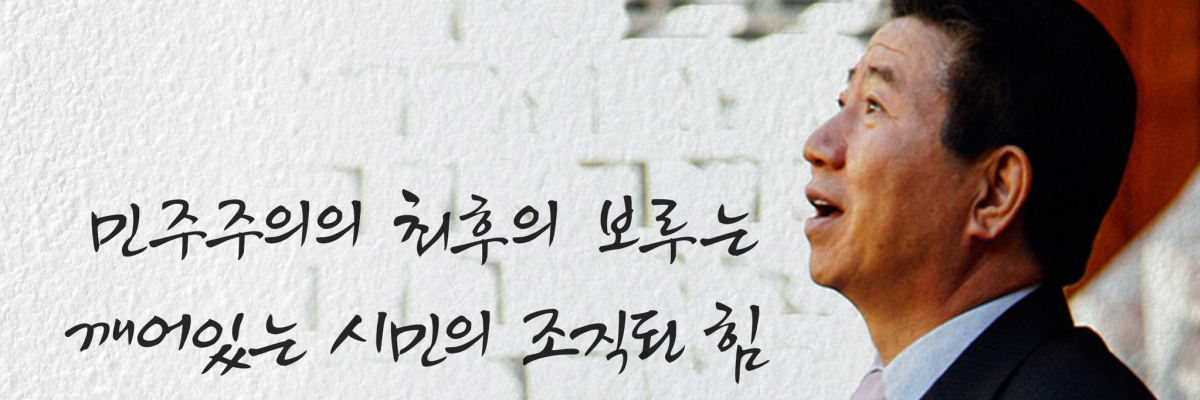 민주주의의 최후의 보루는
깨어있는 시민의 조직된 힘